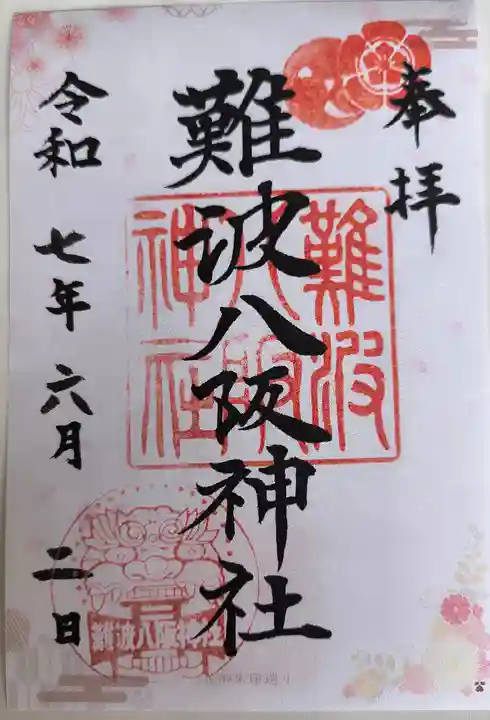 奉拝
難波八阪神社
令和七年六月二日
難波八阪神社
難波八阪神社